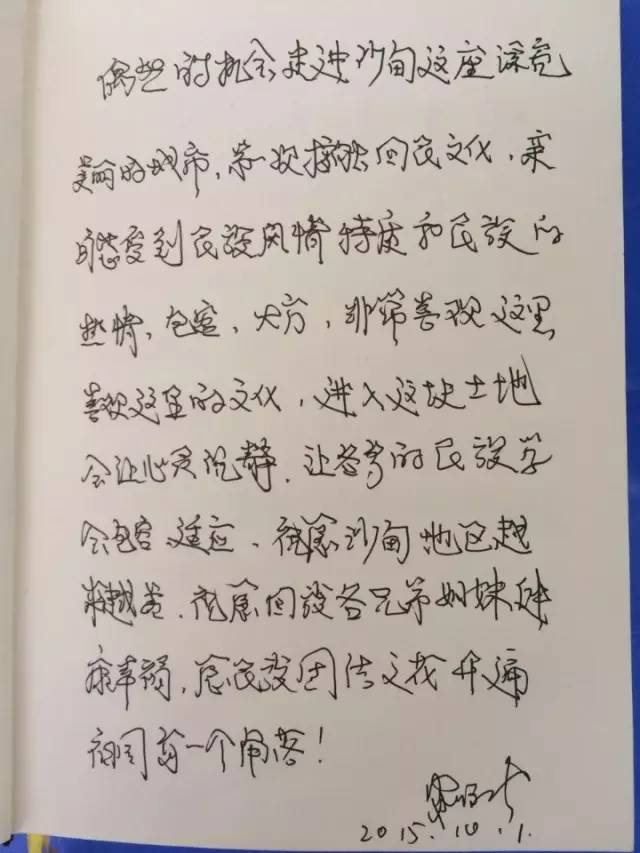 偶然的机会来进沙甸这座漂亮
美丽的城市,第一次接触回民文化,亲
自感受到民族风情特质和民族的
热情,包容,大方,非常喜欢这里
喜欢这里的文化,进入这块土地
会让心灵沉静.让各的民族学
会包容适应,祝愿沙甸地区越
来越美.祝愿回族各兄弟姐妹健
康幸福,愿民族团结之花开遍
祖国每一个角落!
2015.10.1.